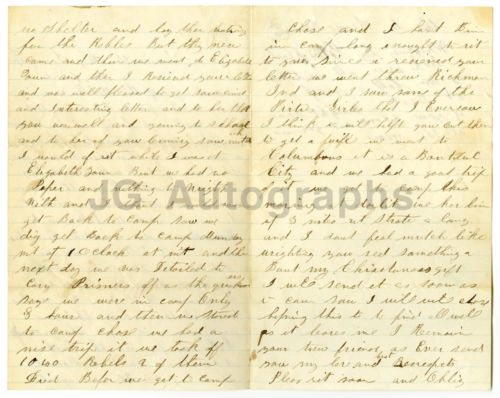 no Shelter and lay there waiting
for the Rebles But they never
came and then we went to Elizabeth
Town and then I Recived your letter
and was well pleased to get such a kind
and Interesting letter and to her that
you was well and going to School
and to her of you Coming
I would of rit while I was at
Elizabeth Town But we had no
Paper and nothing to wright
With and I
get Back to Camp
did get Back to Camp Munday
nit of 10 Oclock at nit and the
next day we was Detailed to
Cary Prisners of as the
Says we were in camp Only
8 hour and then we Started
to Camp Chase we had a
nise trip it we took of
1040 Rebels 2 of them
Died Before we get to Camp
Chase and I hant Bin
in camp long enought to rit
to you Since i recieved your
letter we went threw Richmon
Ind and I saw som of the
Pirties Girles that I Ever saw
I think i will help you out there
to get a wife we went to
Columbus it is a Boutiful
City and we had a good trip
of it we got to Camp this
morning
of 5 nites at Strate a long
and I dont feel mutch like
wrighting you sed something
a Bout my Chrisctmas gift
I will send it as soon as
i can now I will
hoping this to find you well
as it leaves me I Remain
your true friend as Ever send
you my love and best Respects
Pleas rit soon and Oblig
JG Autographs